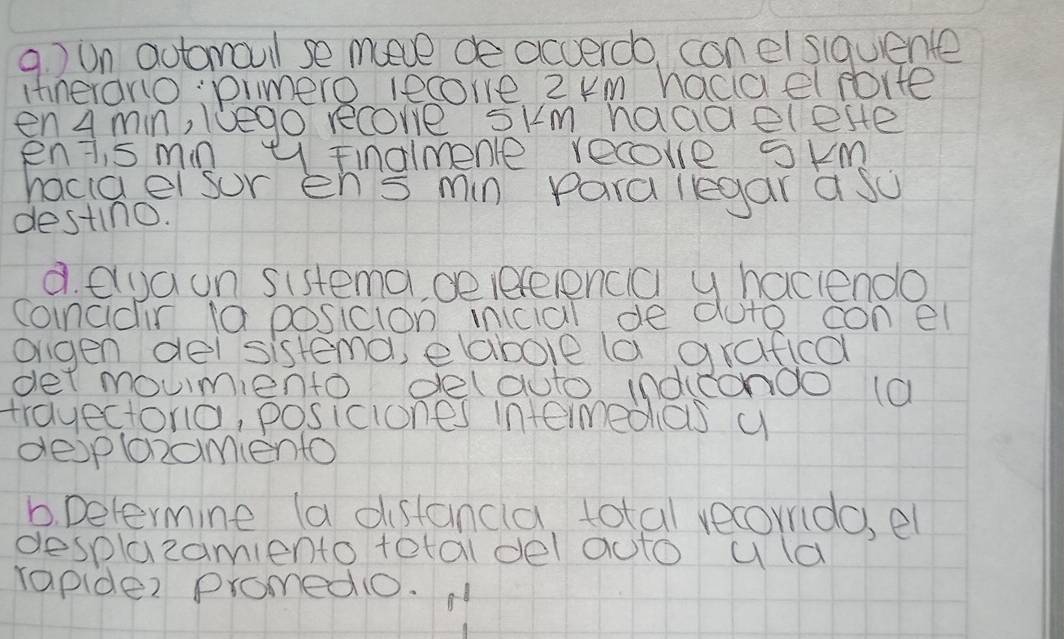 9.) Un automovil se mueve de acuerdo, con el siguiente
itinerario: primero recorre 2 km hacia el norte
en 4 min, luego recorre 5 km hacia el este
en 7,5 min y Finalmente recorre 5 km
hacia el sur en 5 min para llegar a su
destino.
a. elija un sistema de referencia y haciendo
coincidir la posición inicial de auto con el
origen del sistema, elabore la grafica
del movimiento del auto indicando la
trayectoria, posiciones intermedias y
desplazamiento
b. Determine la distancia total recorrida, el
desplazamiento total del auto y la
rapidez promedio.